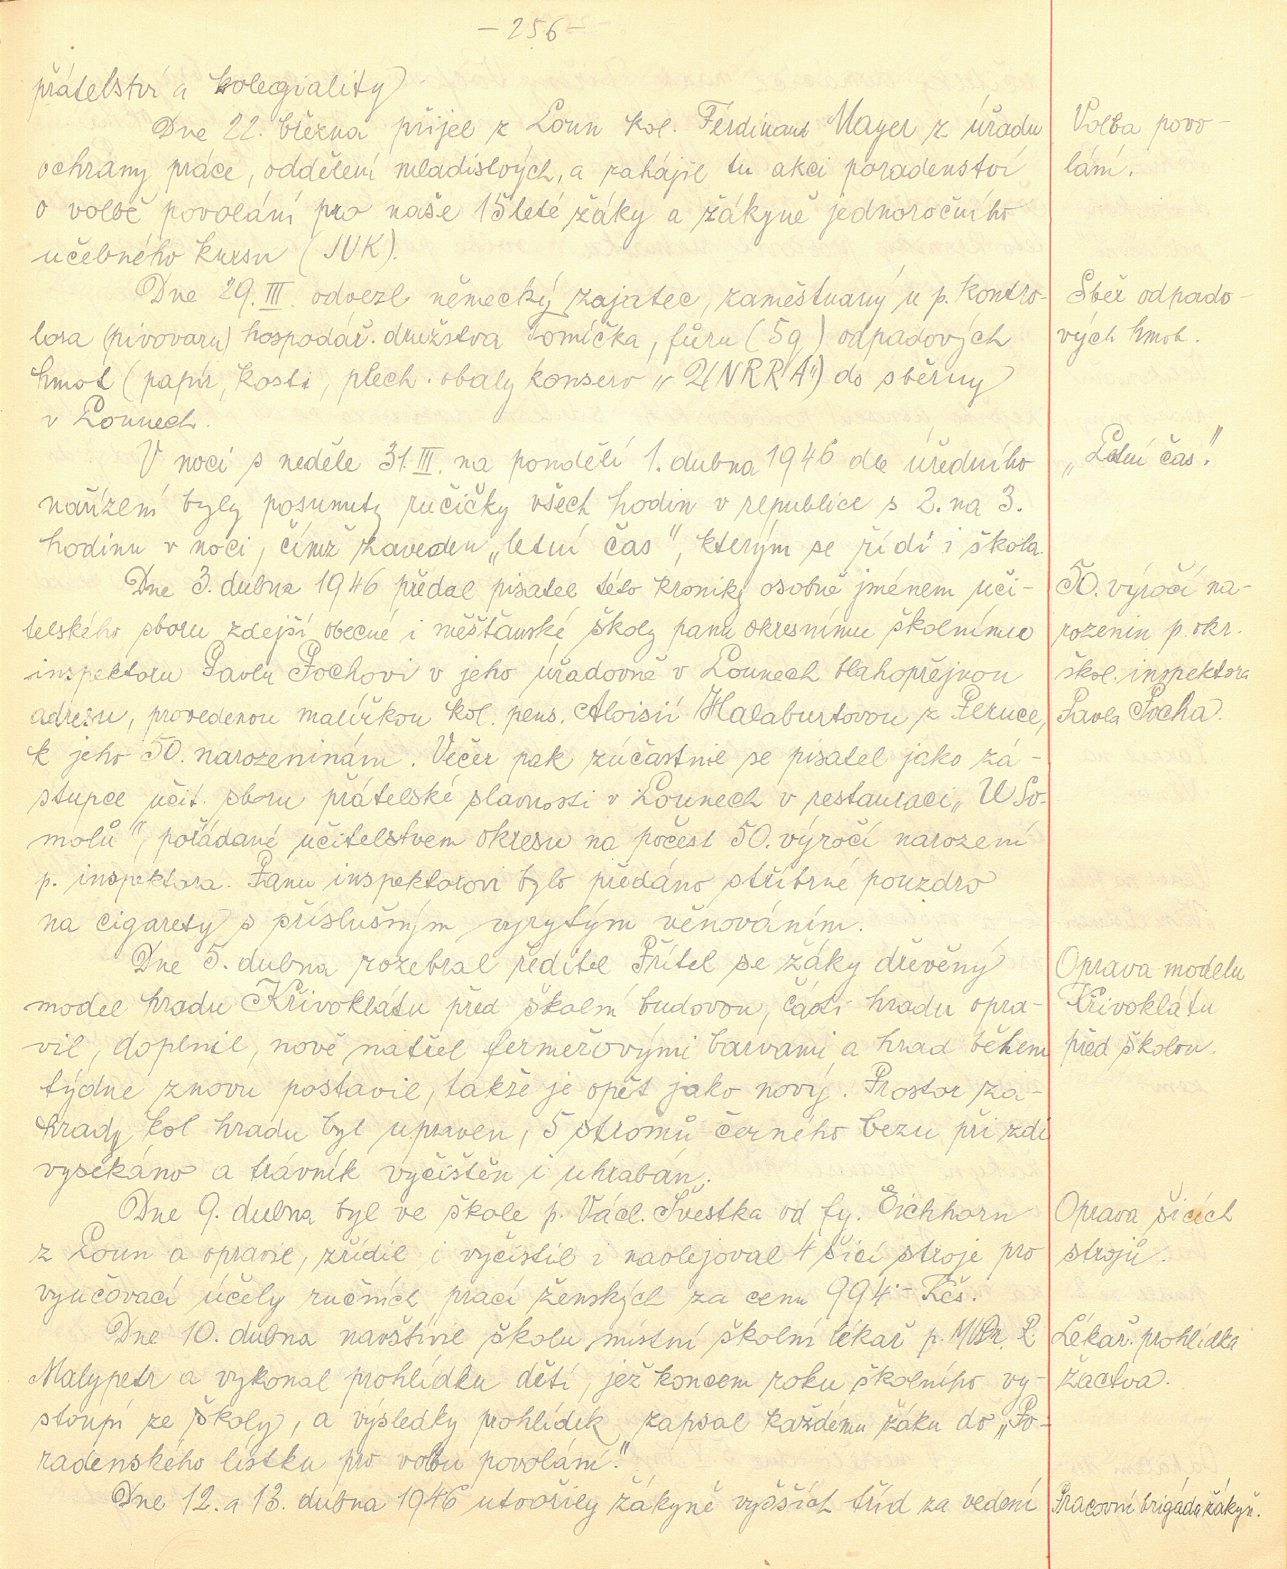 – 256 –
přátelství a kolegiality.
Dne 22. března přijel z Loun kol. Ferdinand Mayer z úřadu
ochrany práce, oddělení mladistvých, a zahájil tu akci poradenství
o volbě povolání pro naše 15leté žáky a žákyně jednoročního
učebného kursu (JUK).
Dne 29. III. odvezl německý zajatec, zaměstnaný u p. kontro-
lora (pivovaru) hospodář. družstva Tomíčka, fůru (5q) odpadových
hmot (papír, kosti, plech. obaly konserv „UNRRA“) do sběrny
v Lounech.
V noci s neděle 31. III. na pondělí 1. dubna 1946 dle úředního
nařízení byly posunuty ručičky všech hodin v republice s 2. na 3.
hodinu v noci, čímž zaveden „letní čas“, kterým se řídí i škola.
Dne 3. dubna 1946 předal pisatel této kroniky osobně jménem uči-
telského sboru zdejší obecné i měšťanské školy panu okresnímu školnímu
inspektoru Pavlu Pochovi v jeho úřadovně v Lounech blahopřejnou
adresu, provedenou malířkou kol. pens. Aloisií Halaburtovou z Peruce,
k jeho 50. narozeninám. Večer pak zúčastnil se pisatel jako zá-
stupce učit. sboru přátelské slavnosti v Lounech v restauraci „U So-
molů“, pořádané učitelstvem okresu na počest 50. výročí narození
p. inspektora. Panu inspektorovi bylo předáno stříbrné pouzdro
na cigarety s příslušným vyrytým věnováním.
Dne 5. dubna rozebral ředitel Přítel se žáky dřevěný
model hradu Křivoklátu před školní budovou, části hradu opra-
vil, doplnil, nově natřel fermežovými barvami a hrad během
týdne znovu postavil, takže je opět jako nový. Prostor za-
hrady kol hradu byl upraven, 5 stromů černého bezu při zdi
vysekáno a trávník vyčištěn i uhrabán.
Dne 9. dubna byl ve škole p. Václ. Švestka od fy. Eichhorn
z Loun a opravil, zřídil i vyčistil i naolejoval 4 šicí stroje pro
vyučovací účely ručních prací ženských za cenu 994·– Kčs.
Dne 10. dubna navštívil školu místní školní lékař p. MUDr. R.
Malypetr a vykonal prohlídku dětí, jež koncem roku školního vy-
stoupí ze školy, a výsledky prohlídek zapsal každému žáku do „Po-
radenského lístku pro volbu povolání.“
Dne 12. a 13. dubna 1946 utvořily žákyně vyšších tříd za vedení
Volba povo-
lání.
Sběr odpado-
vých hmot.
„Letní čas“.
50. výročí na-
rozenin p. okr.
škol. inspektora
Pavla Pocha.
Oprava modelu
Křivoklátu
před školou.
Oprava šicích
strojů.
Lékař. prohlídka
žactva.
Pracovní brigáda žákyň.